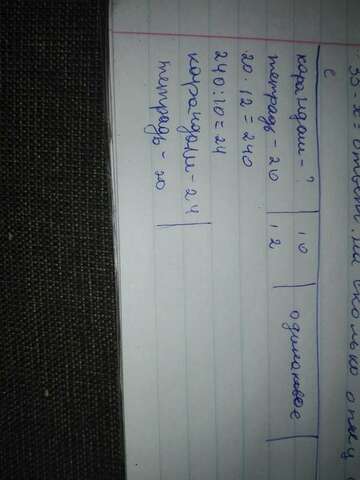 карандаш - ? | 10 | одинаковое
тетрадь - 20 | 12 |
20 . 12 = 240
240 : 10 = 24
карандаш - 24 |
тетрадь - 20 |